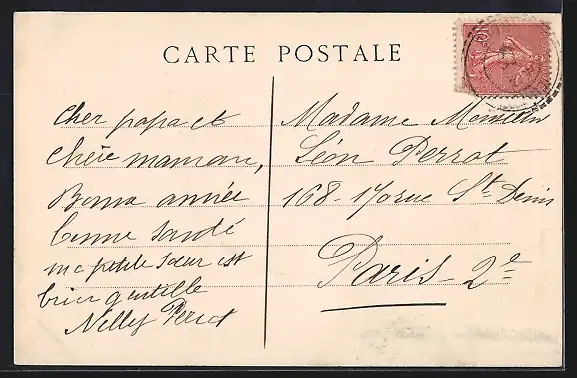 CARTE POSTALE
Cher papa et
chère maman,
Bonne année
bonne santé
ma petite sœur est
bien gentille
Nelly Perrot
Madame
Léon Perrot
168-170 rue St Denis
Paris 2e
10